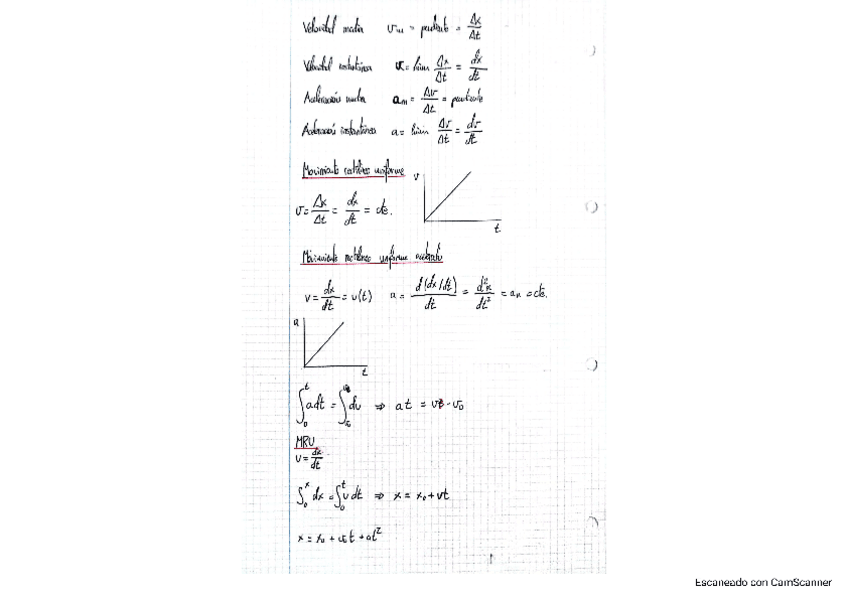 Velocidad media vₘ = pendiente = Δx/Δt
Velocidad instantánea v = lím Δx/Δt = dx/dt
Aceleración media aₘ = Δv/Δt = pendiente
Aceleración instantánea a = lím Δv/Δt = dv/dt
Movimiento rectilíneo uniforme
v
t
v = Δx/Δt = dx/dt = cte.
Movimiento rectilíneo uniforme acelerado
v = dx/dt = v(t) a = d(dx/dt)/dt = d²x/dt² = aₘ = cte.
a
t
∫₀ᵗ a dt = ∫ dv ⇒ at = v - v₀
MRU
v = dx/dt
∫₀ˣ dx = ∫₀ᵗ v dt ⇒ x = x₀ + vt
x = x₀ + v₀t + at²
Escaneado con CamScanner